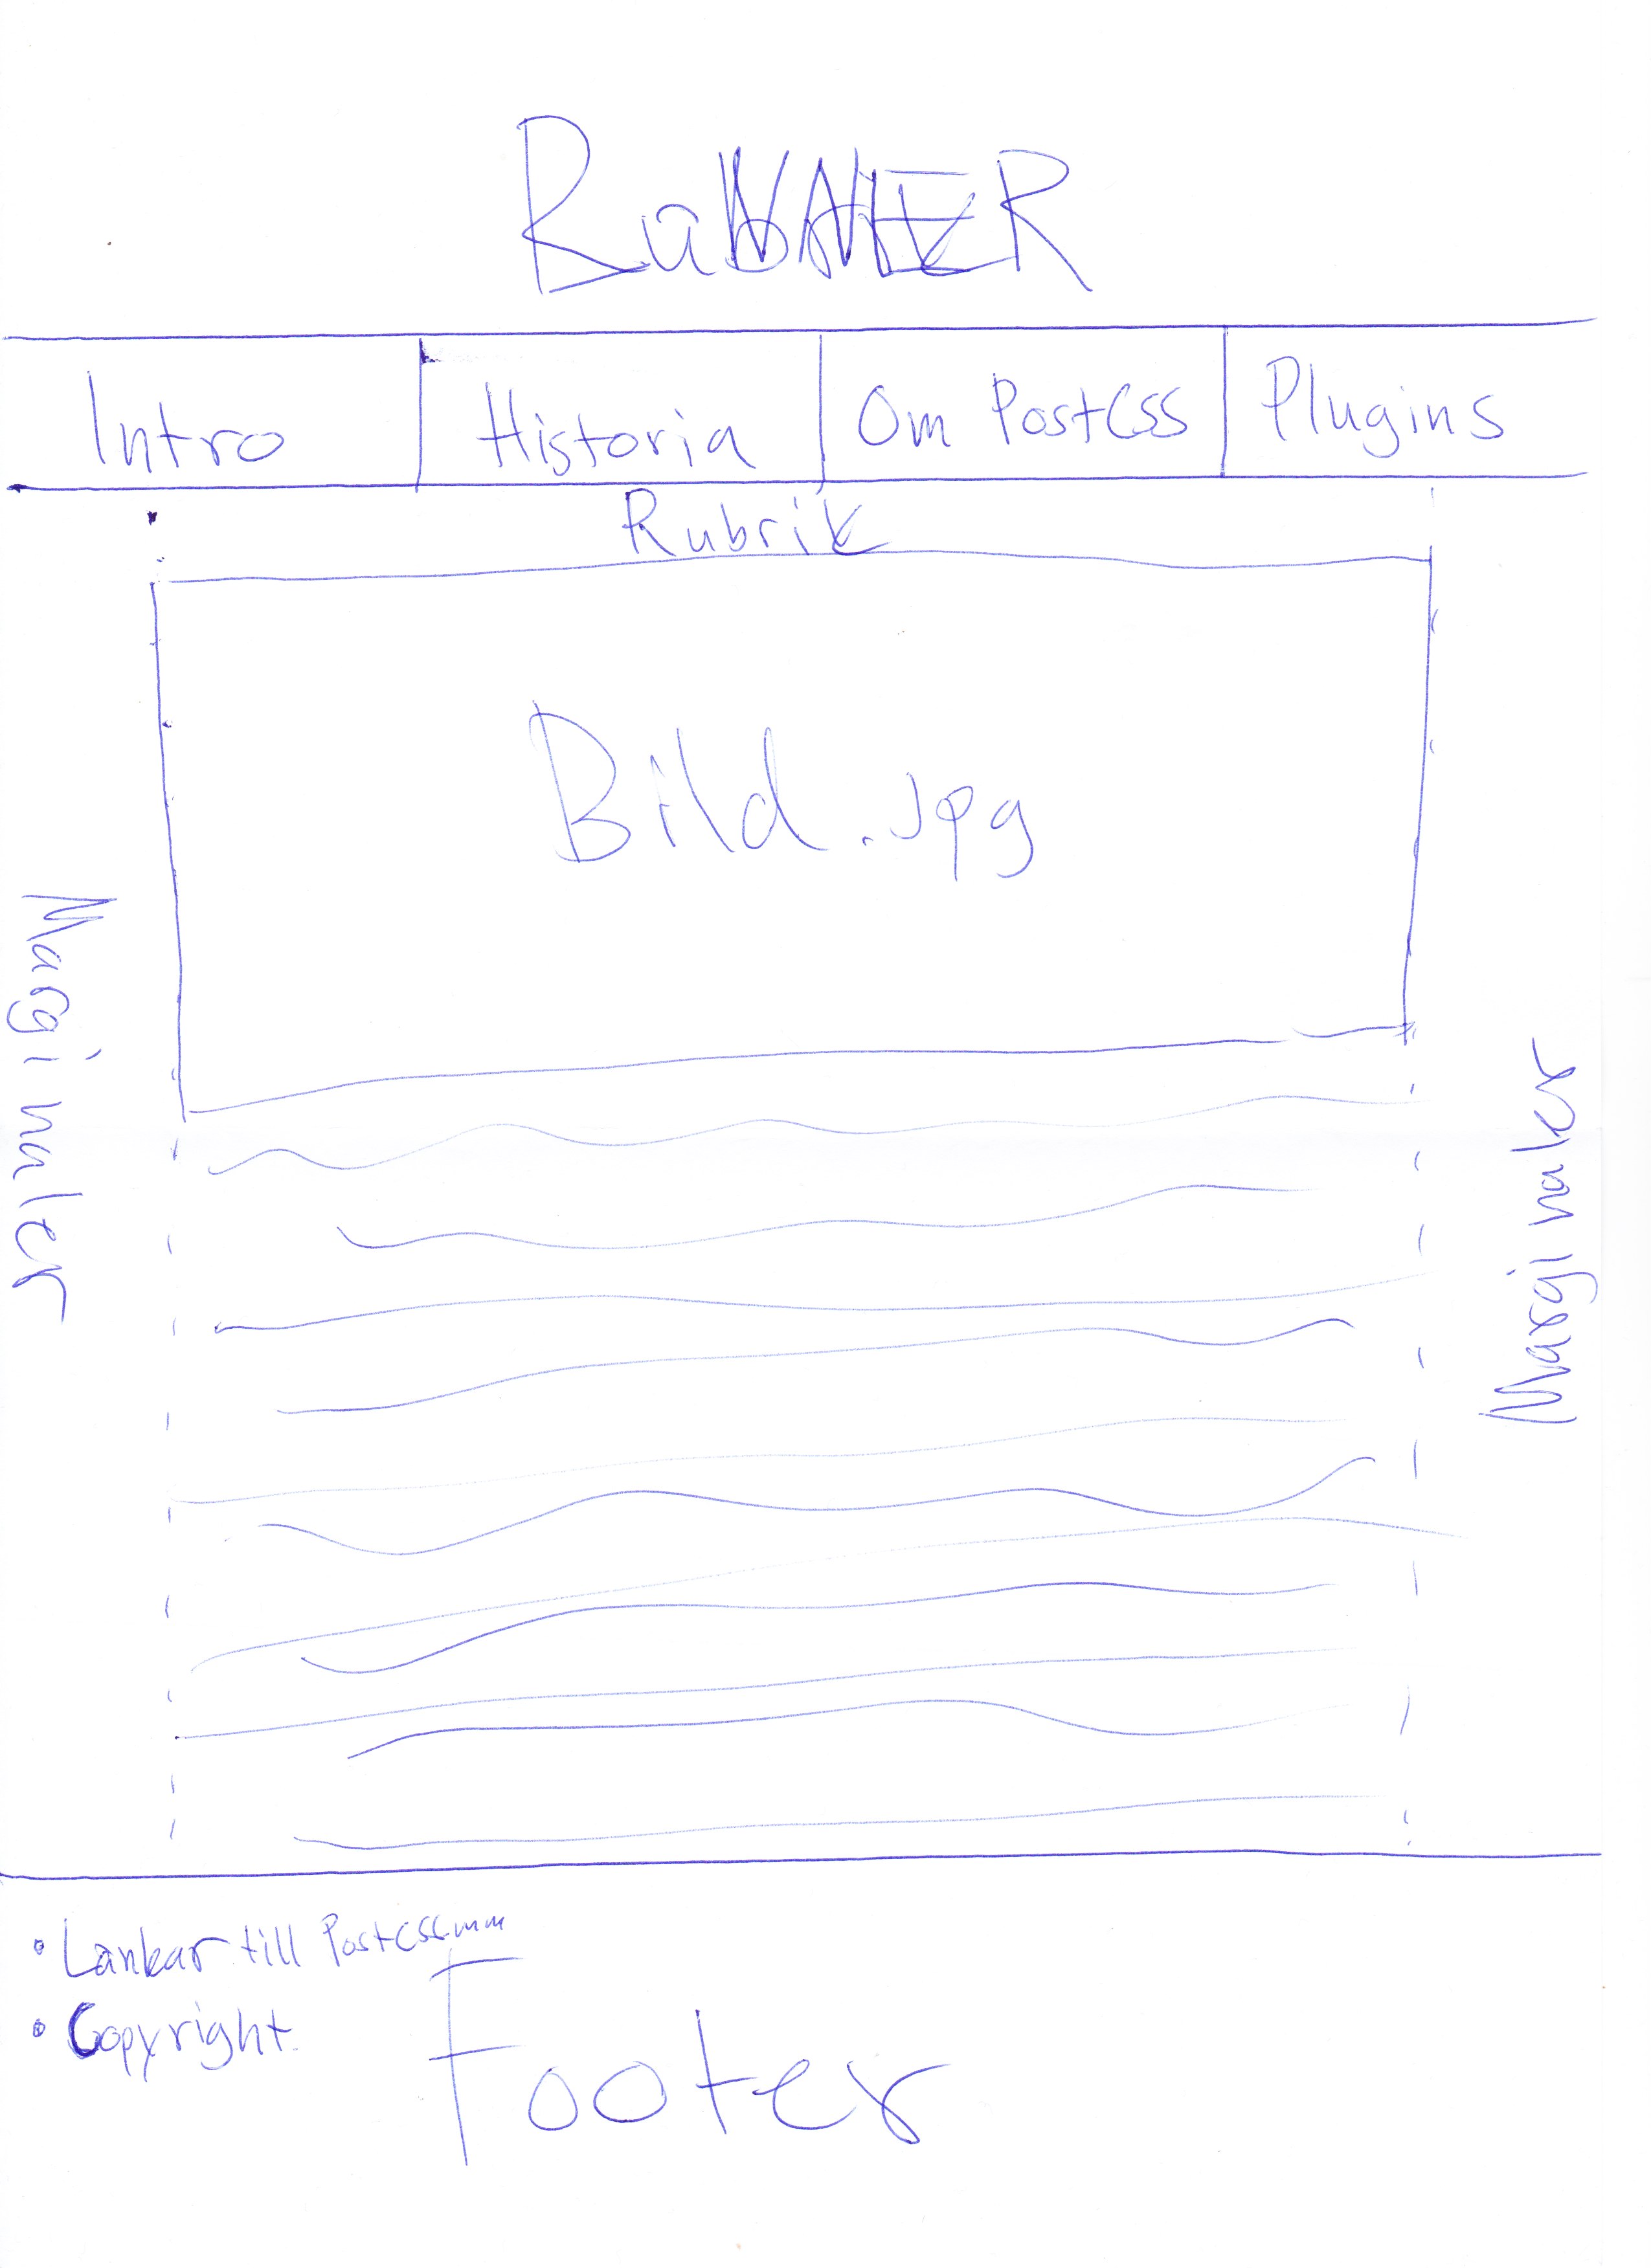 BANNER
Intro Historia Om PostCSS Plugins
Rubrik
Bild.jpg
Marginaler
Marginaler
• Länkar till Postcss
• Copyright.
Footer